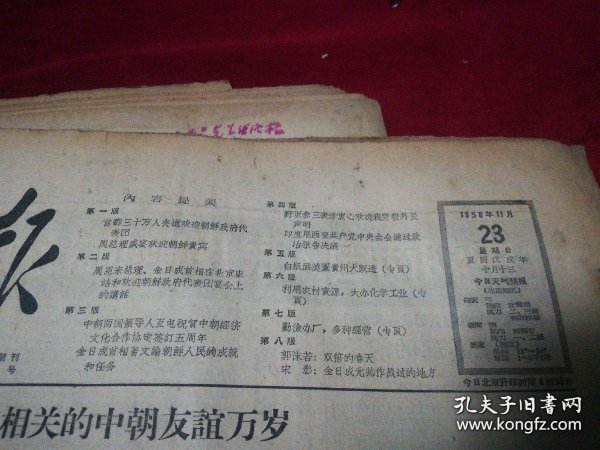 报
内容提要
第一版
首都三十万人夹道欢迎朝鲜政府代
表团
周总理盛宴欢迎朝鲜贵宾
第二版
周恩来总理、金日成首相在北京车
站和欢迎朝鲜政府代表团宴会上
的讲话
第三版
中朝两国领导人互电祝贺中朝经济
文化合作协定签订五周年
金日成首相著文论朝鲜人民的成就
和任务
第四版
声明
印度尼西亚共产党中央全会通过政
治报告决议
第五版
第六版
利用农村资源，大办化学工业（专
页）
第七版
勤俭办厂，多种经营（专页）
第八版
郭沫若：双熔的春天
宋影：金日成元帅作战过的地方
1958年11月
23
星期日
夏历戊戌年
十月十三
今日天气预报
（北京地区）
今日北京开印时间4时50分
创刊
号
相关的中朝友谊万岁
孔夫子旧书网
www.kongfz.com